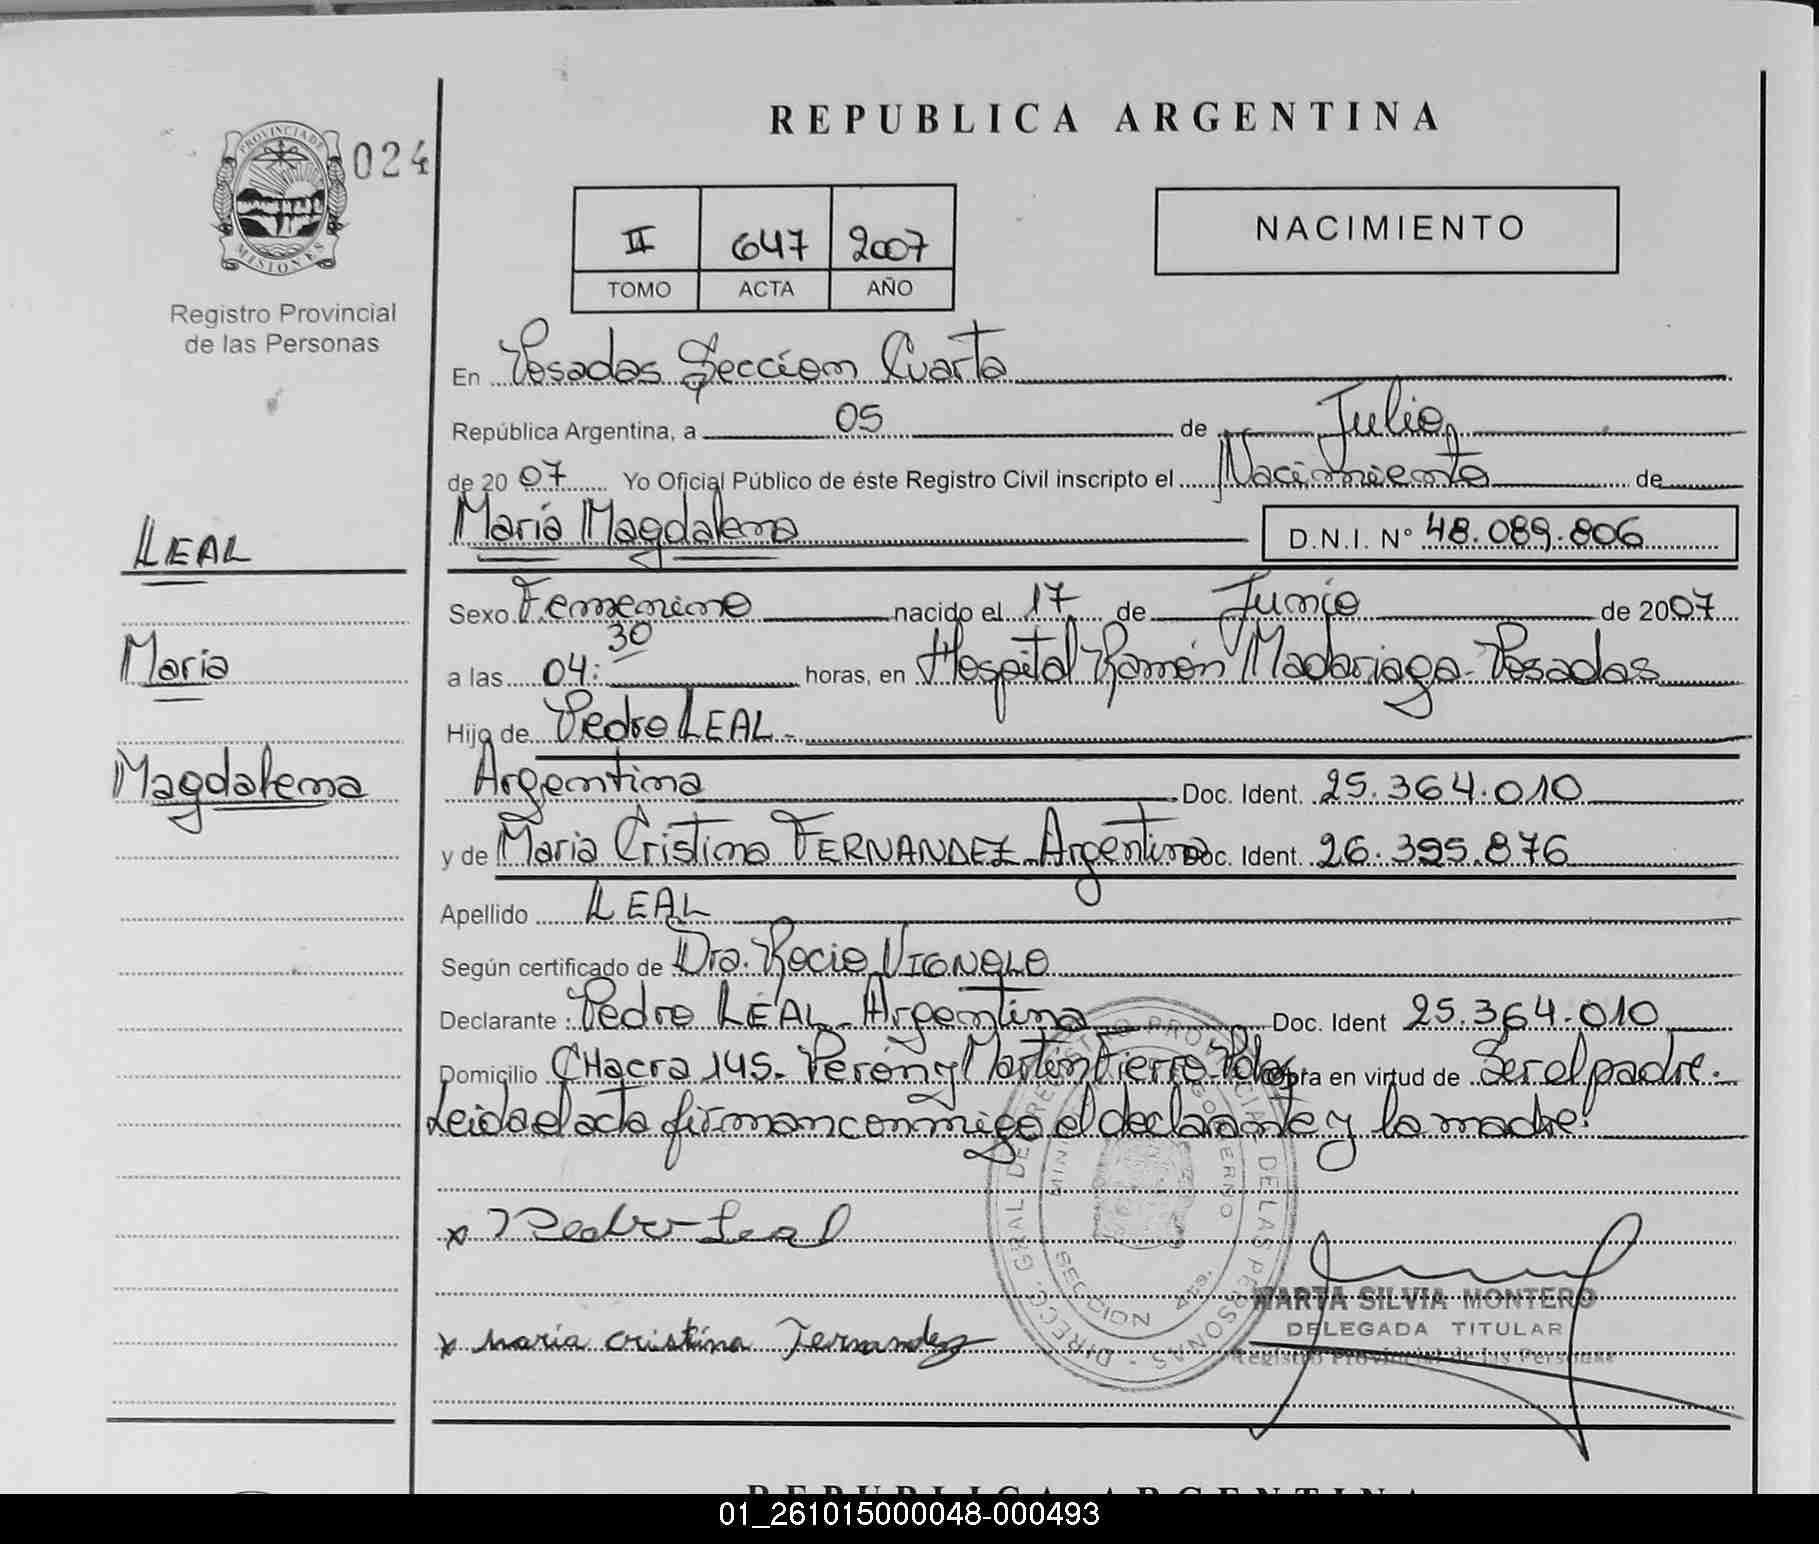 REPUBLICA ARGENTINA
PROVINCIA DE
MISIONES
024
Registro Provincial
de las Personas
II 647 2007
TOMO ACTA AÑO
NACIMIENTO
En Posadas Sección Cuarta
República Argentina, a 05 de Julio
de 2007 Yo Oficial Público de éste Registro Civil inscripto el Nacimiento de
María Magdalena D.N.I. Nº 48.089.806
LEAL
María
Magdalena
Sexo Femenino nacido el 17 de Junio de 2007
a las 04:30 horas, en Hospital Ramón Madariaga - Posadas
Hijo de Pedro LEAL -
Argentina Doc. Ident. 25.364.010
y de Maria Cristina FERNANDEZ - Argentina Doc. Ident. 26.395.876
Apellido LEAL
Según certificado de Dra. Rocio VIGNOLO
Declarante : Pedro LEAL - Argentina Doc. Ident 25.364.010
Domicilio CHacra 145 - Perón y Martín Fierro - Pdas obra en virtud de Ser el padre.
Leida el acta firman conmigo el declarante y la madre.
x Pedro Leal
x Maria cristina Fernandez
DIRECC. GRAL DE REGISTRO PROVINCIAL DE LAS PERSONAS
GOBIERNO
SECCION 4ta.
MARTA SILVIA MONTERO
DELEGADA TITULAR
Registro Provincial de las Personas
REPUBLICA ARGENTINA
01_261015000048-000493